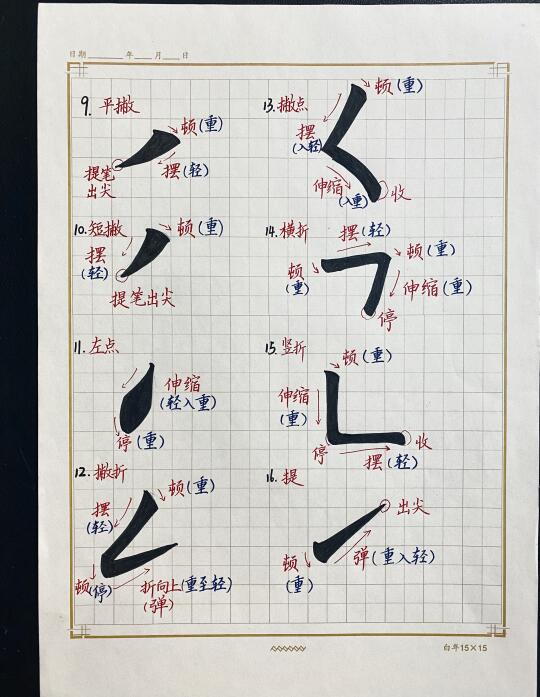 日期____年__月__日
9. 平撇
顿(重)
摆(轻)
提笔
出尖
10.短撇
顿(重)
摆
(轻)
提笔出尖
11.左点
伸缩
(轻入重)
停(重)
12.撇折
顿(重)
摆
(轻)
顿(停)
折向上(重至轻)
(弹)
13.撇点
顿(重)
摆
(入轻)
伸缩
(入重)
收
14.横折
摆(轻)
顿(重)
顿
(重)
伸缩(重)
停
15.竖折
顿(重)
伸缩
(重)
停
收
摆(轻)
16.提
出尖
弹(重入轻)
顿
(重)
白年15×15